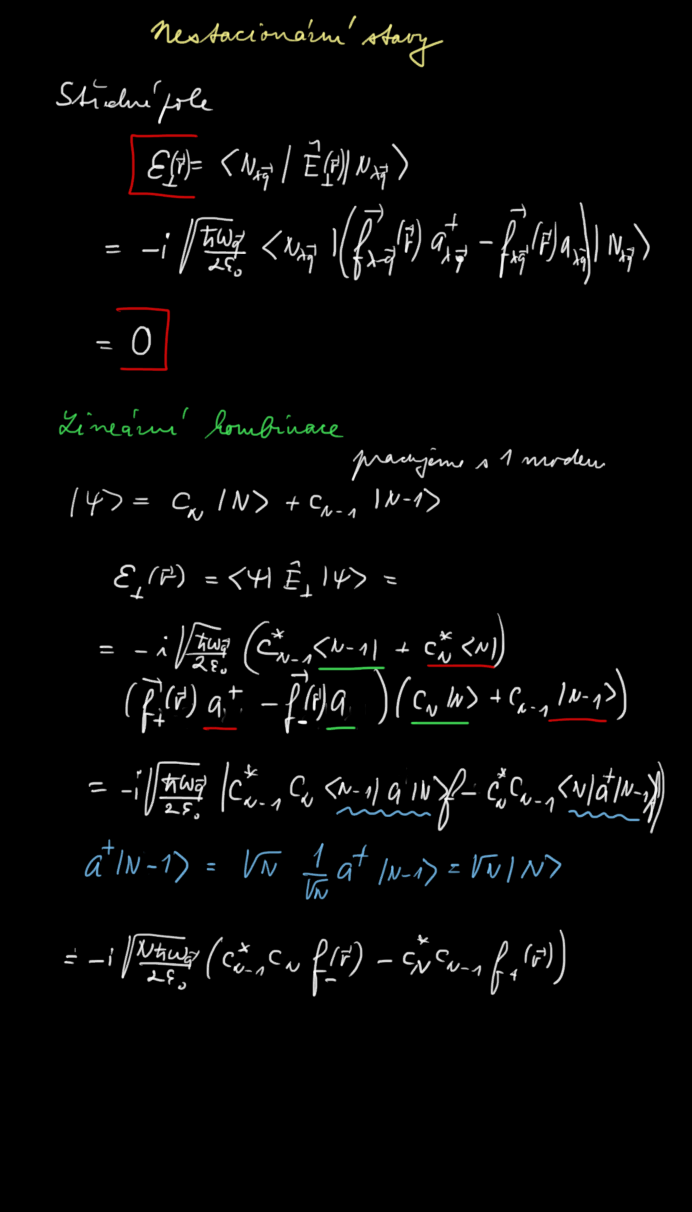 Nestacionární stavy
Střední pole
ℰ⊥(r⃗) = ⟨N_λq⃗ | Ê⊥(r⃗) | N_λq⃗⟩
= -i √(ħω_q⃗ / 2ε₀) ⟨N_λq⃗ | (f⃗_λ-q⃗(r⃗) a⁺_λq⃗ - f⃗_λq⃗(r⃗) a_λq⃗) | N_λq⃗⟩
= 0
Lineární kombinace
pracujeme s 1 modem
|ψ⟩ = c_N |N⟩ + c_N-1 |N-1⟩
ℰ⊥(r⃗) = ⟨ψ| Ê⊥ |ψ⟩ =
= -i √(ħω_q⃗ / 2ε₀) (c*_N-1 ⟨N-1| + c*_N ⟨N|)
(f⃗₊(r⃗) a⁺ - f⃗₋(r⃗) a) (c_N |N⟩ + c_N-1 |N-1⟩)
= -i √(ħω_q⃗ / 2ε₀) (c*_N-1 c_N ⟨N-1| a |N⟩ f₋ - c*_N c_N-1 ⟨N| a⁺ |N-1⟩ f)
a⁺ |N-1⟩ = √N 1/√N a⁺ |N-1⟩ = √N |N⟩
= -i √(Nħω_q⃗ / 2ε₀) (c*_N-1 c_N f₋(r⃗) - c*_N c_N-1 f₊(r⃗))